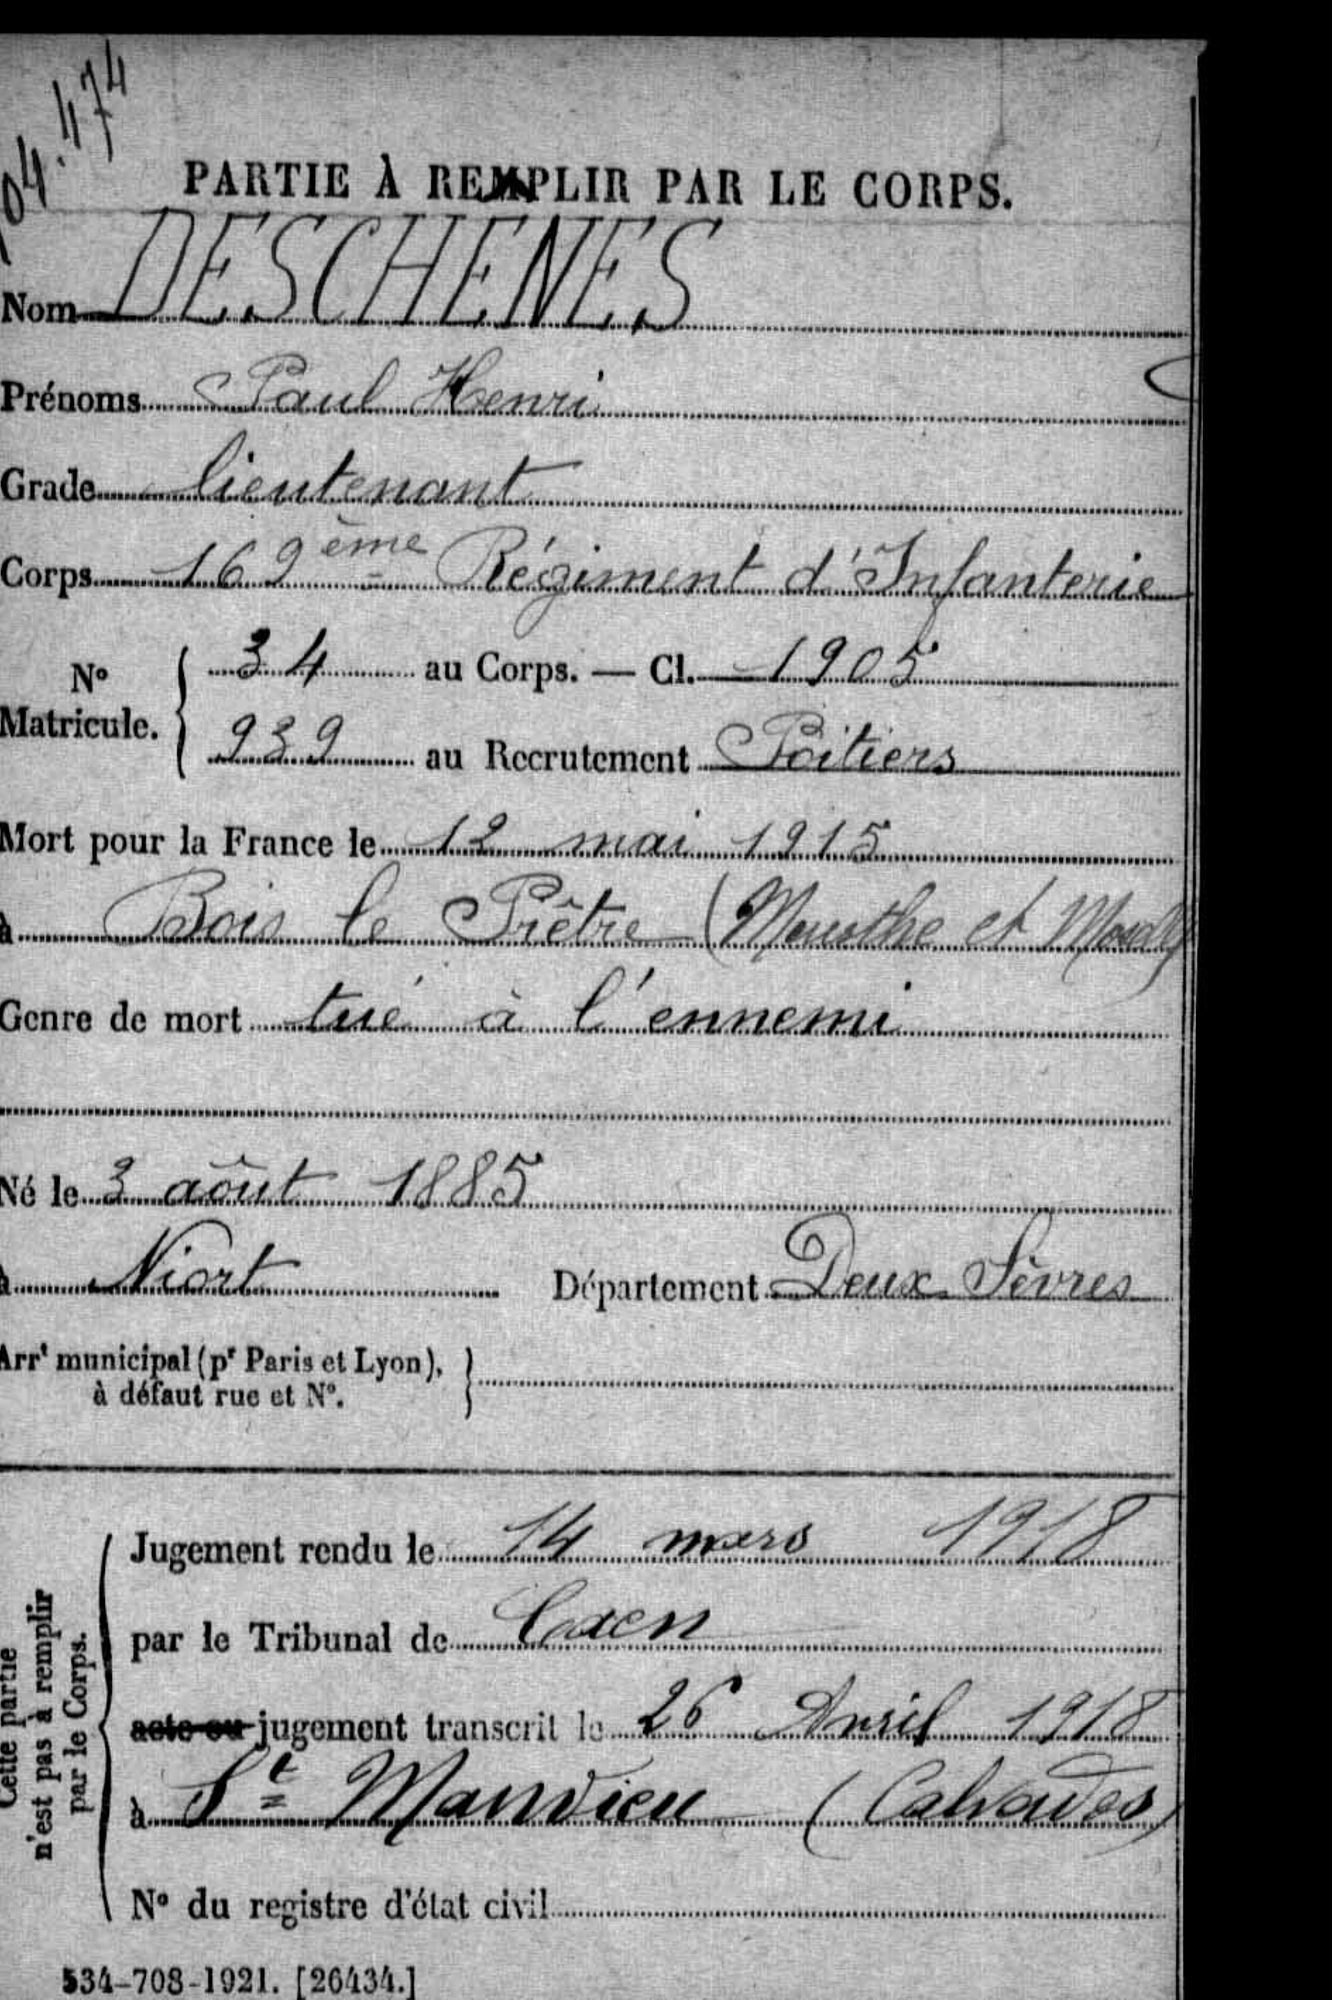 04.474
PARTIE À REMPLIR PAR LE CORPS.
Nom DESCHENES
Prénoms Paul Henri
Grade lieutenant
Corps 169ème Régiment d'Infanterie
N° Matricule. { 34 au Corps. — Cl. 1905
939 au Recrutement Poitiers
Mort pour la France le 12 mai 1915
à Bois le Prêtre (Meurthe et Moselle)
Genre de mort tué à l'ennemi
Né le 3 aôut 1885
à Niort Département Deux Sèvres
Arrt municipal (pr Paris et Lyon), }
à défaut rue et N°.
Cette partie
n'est pas à remplir
par le Corps.
Jugement rendu le 14 mars 1918
par le Tribunal de Caen
acte ou jugement transcrit le 26 Avril 1918
à St Manvieu (Calvados)
N° du registre d'état civil
534-708-1921. [26434.]